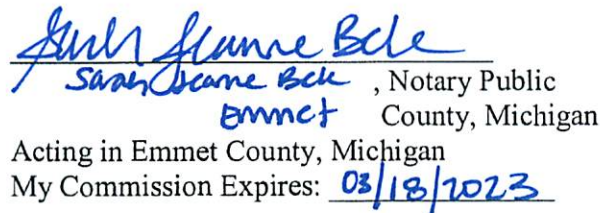 Sarah Jeanne Bele
Sarah Jeanne Bele , Notary Public
Emmet County, Michigan
Acting in Emmet County, Michigan
My Commission Expires: 03/18/2023